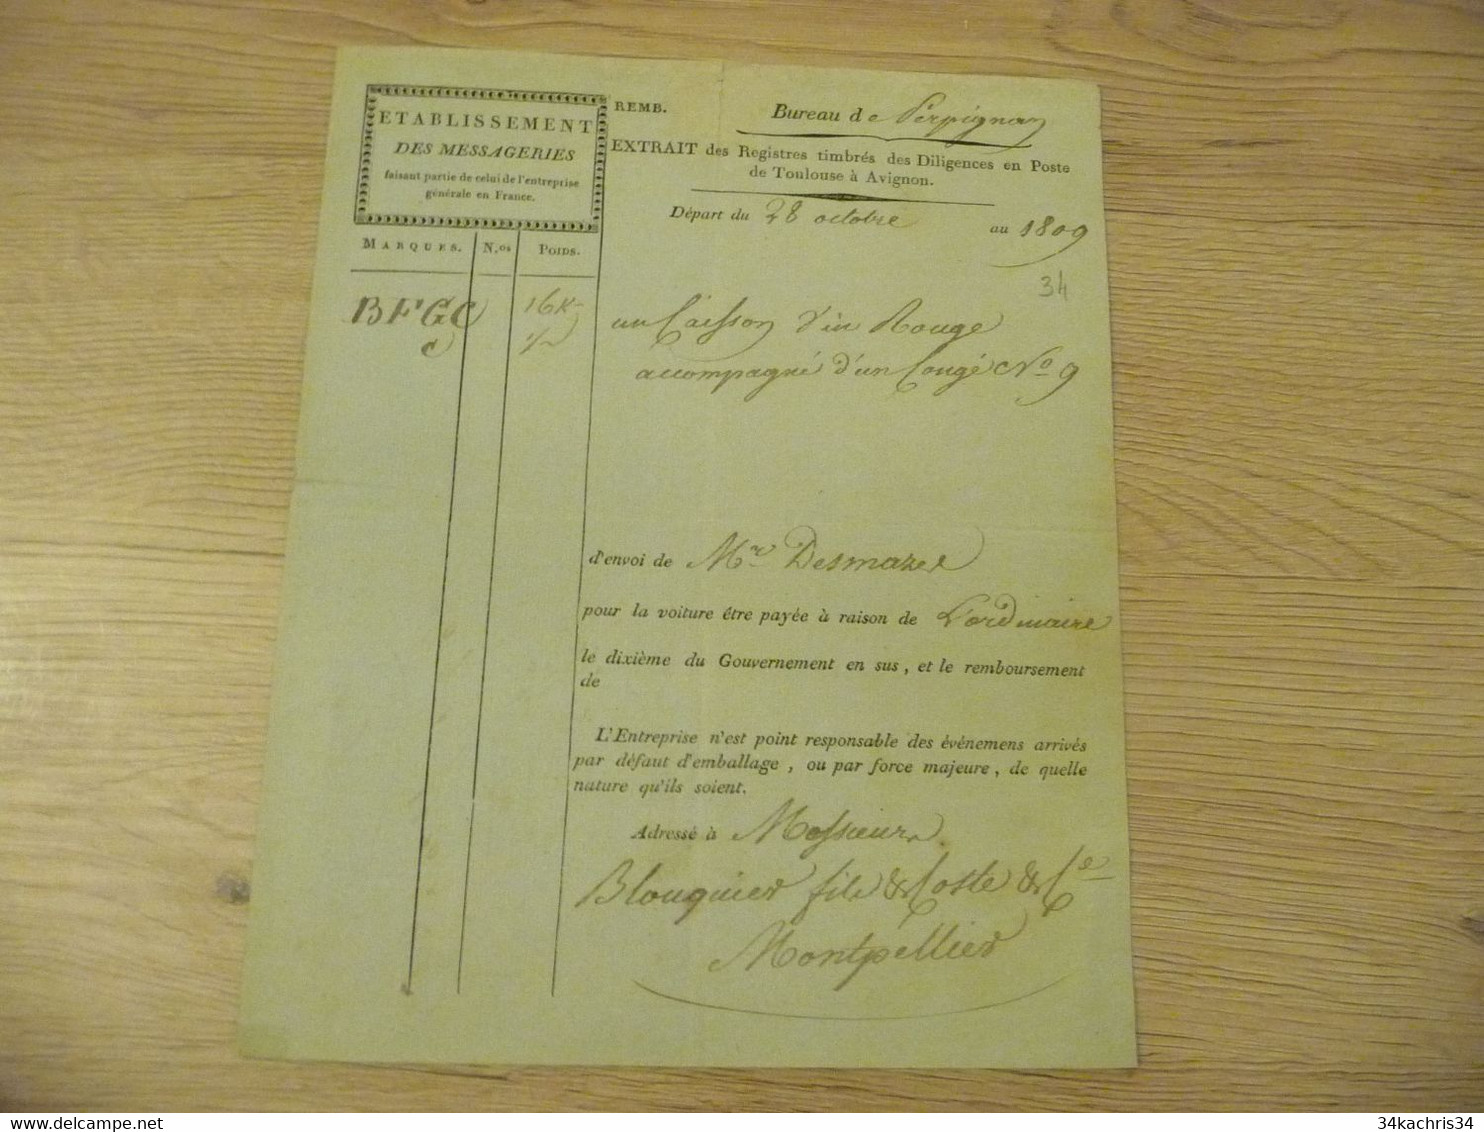 ETABLISSEMENT
DES MESSAGERIES
faisant partie de celui de l'entreprise
générale en France.
REMB.
Bureau de Perpignan
EXTRAIT des Registres timbrés des Diligences en Poste
de Toulouse à Avignon.
Départ du 28 octobre au 1809
34
MARQUES. N.os POIDS.
BFGC 16 K
c 1/2
un Caisson Vin Rouge
accompagné d'un Congé No 9
d'envoi de Mr Desmazes
pour la voiture être payée à raison de L'ordinaire
le dixième du Gouvernement en sus, et le remboursement
de
L'Entreprise n'est point responsable des événemens arrivés
par défaut d'emballage, ou par force majeure, de quelle
nature qu'ils soient.
Adressé à Messieurs
Blouquier fils & Coste & Ce
Montpellier
delcampe.net
34kachris34